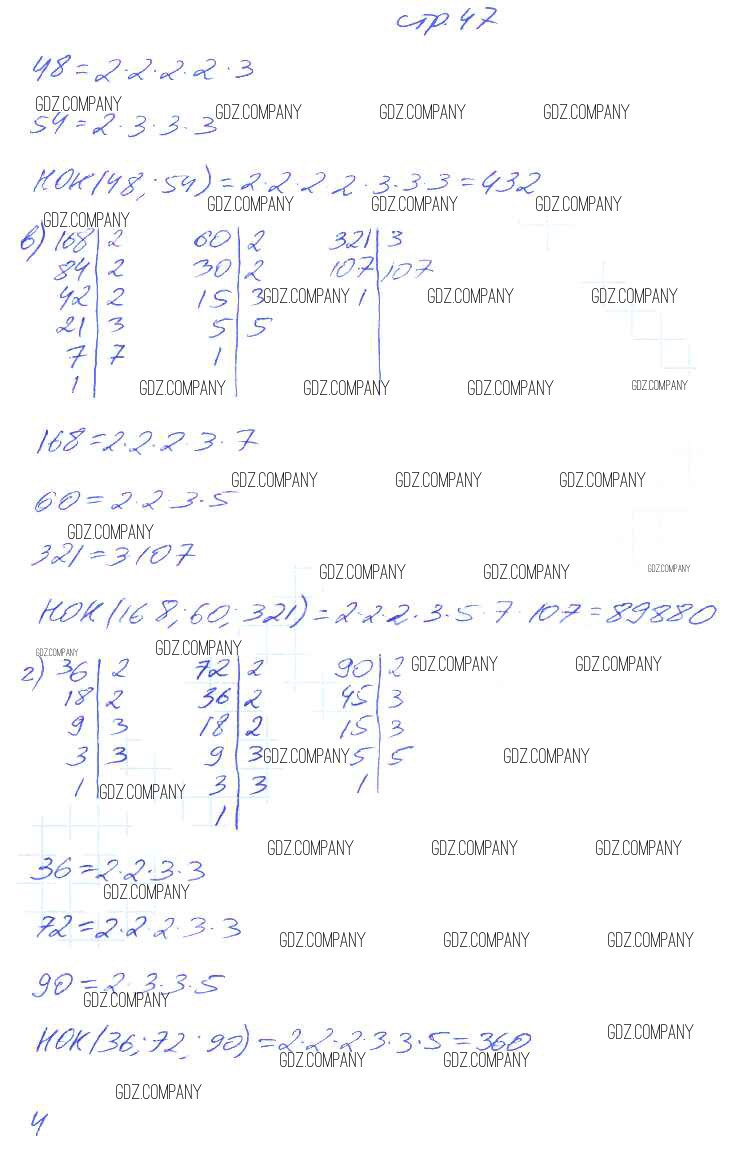 стр. 47
48 = 2·2·2·2·3
GDZ.COMPANY GDZ.COMPANY GDZ.COMPANY GDZ.COMPANY
54 = 2·3·3·3
НОК(48; 54) = 2·2·2 2·3·3·3 = 432
GDZ.COMPANY GDZ.COMPANY GDZ.COMPANY
GDZ.COMPANY
в) 168|2 60|2 321|3
84|2 30|2 107|107
42|2 15|3 1| GDZ.COMPANY GDZ.COMPANY GDZ.COMPANY
21|3 5|5
7|7 1|
1| GDZ.COMPANY GDZ.COMPANY GDZ.COMPANY GDZ.COMPANY
168 = 2·2·2·3·7
GDZ.COMPANY GDZ.COMPANY GDZ.COMPANY
60 = 2·2·3·5
GDZ.COMPANY
321 = 3·107
GDZ.COMPANY GDZ.COMPANY GDZ.COMPANY
НОК(168; 60; 321) = 2·2·2·3·5·7·107 = 89880
GDZ.COMPANY GDZ.COMPANY
г) 36|2 72|2 90|2 GDZ.COMPANY GDZ.COMPANY
18|2 36|2 45|3
9|3 18|2 15|3
3|3 9|3 5|5 GDZ.COMPANY GDZ.COMPANY
1| 3|3 1| GDZ.COMPANY
1|
GDZ.COMPANY GDZ.COMPANY GDZ.COMPANY
36 = 2·2·3·3
GDZ.COMPANY
72 = 2·2·2·3·3
GDZ.COMPANY GDZ.COMPANY GDZ.COMPANY
90 = 2·3·3·5
GDZ.COMPANY
НОК(36; 72; 90) = 2·2·2·3·3·5 = 360
GDZ.COMPANY GDZ.COMPANY GDZ.COMPANY
GDZ.COMPANY
4